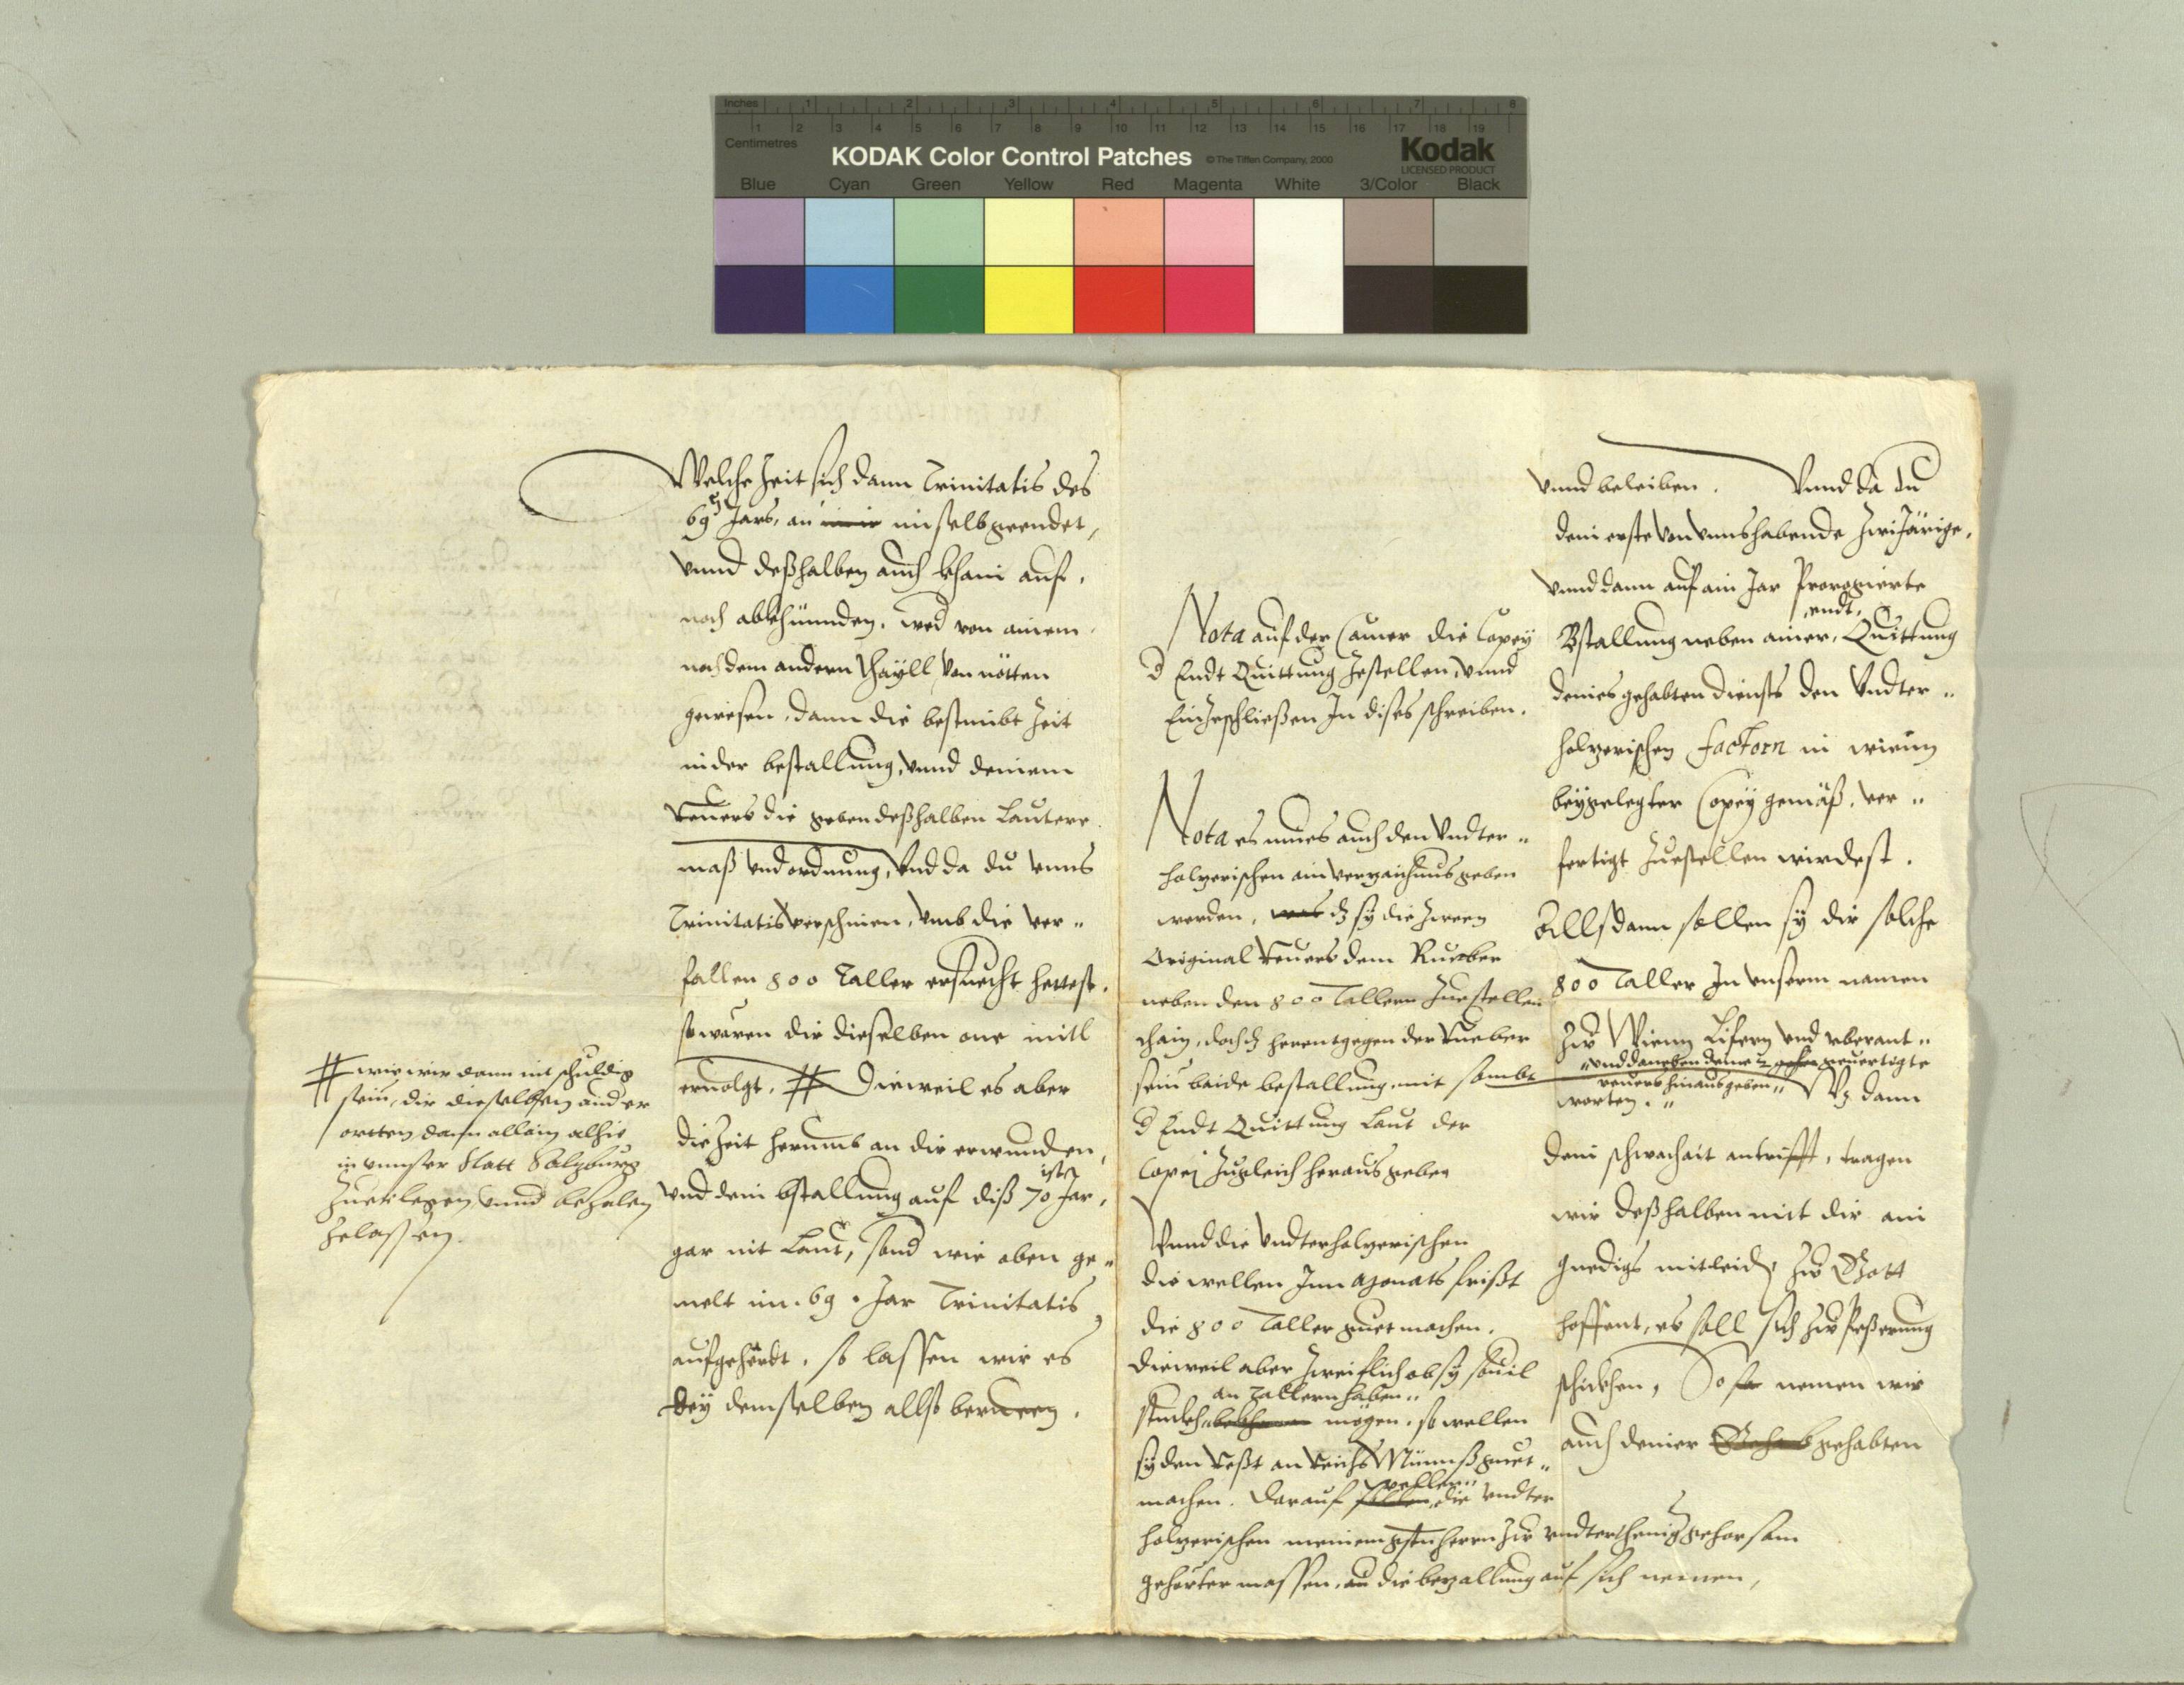 Inches 1 2 3 4 5 6 7 8
1 2 3 4 5 6 7 8 9 10 11 12 13 14 15 16 17 18 19
Centimetres
KODAK Color Control Patches © The Tiffen Company, 2000
Kodak
LICENSED PRODUCT
Blue Cyan Green Yellow Red Magenta White 3/Color Black
Welche Zeit sich dann Trinitatis des
69 Jars, an im selb geendet,
vnnd deßhalben auch khain auf,
noch abkhünnden, wed von ainem
nach dem andern thayll von nötten
gewesen, dann die bestimbt Zeit
in der bestallung, vnnd deinem
Reuers die geben deßhalben Lautere
maß vnd ordnung, Vnd da du vnns
Trinitatis verschinen, vmb die ver„
fallen 800 Taller ersuecht hettest,
so waren dir dieselben one mitl
eruolgt, # Dieweil es aber
die Zeit herumb an dir erwunden,
vnd dein bstallung auf diß 70 isten Jar,
gar nit Laut, sond wie oben ge„
melt im 69. Jar Trinitatis
aufgehördt, so lassen wir es
bey demselben allso berueen.
# wie wir dann nit schuldig
sein, dir dieselben ander
ortten dann allain alhie
in vnnser Statt Salzburg
Zuerlegen vnnd bezalen
Zelassen.
Nota auf der Camer die Copey
d Endt Quittung Zestellen, vnnd
Einzeschließen In dises schreiben.
Nota es mues auch den Vndter„
holzerischen ain verzaichnus geben
werden, was dz sy die Zween
Original Reuers dem Rueber
neben den 800 Tallern Zuestellen
doch dz herentgegen der Rueber
sein baide bestallung mit sambt
d Endt Quittung Laut der
Copei Zugleich heraus geben
Vnnd die Vndterholzerischen
die wellen Inn Monats frißt
die 800 Taller guet machen,
dieweil aber Zweiflich ob sy souil
an Tallern haben„
stuckh mögen, so wellen
sy den Reßt an Reichs Münnß guet„
machen. Darauf
wellen„
sollen die Vndter
holzerischen meinem gsten herrn Zw vndterthenig gehorsam
gehörter massen, an die bezallung auf sich nemen,
vnnd beleiben. Vnnd da du
dein erste von vnns habende Zwijärige,
vnnd dann auf ain Jar Prorogierte
endt,
Bstallung neben ainer, Quittung
deines gehabten diensts den Vndter„
holzerischen factorn in wienn
beygelegter Copey gemäß, ver„
fertigt Zuestellen wirdest.
Allsdann sollen sy dir solche
800 Taller In vnserm namen
Zw Wienn Lifern vnd vberant„
„vnd daneben deine 2 geuertigte
reuers hinausgeben„
worten.„ Vz dann
dein schwachait antrifft, tragen
wir deßhalben mit dir ain
gnedigs mitleid, Zw Gott
hoffent, es soll sich Zw Peßerung
schickhen, So nemen wir
auch deiner gehabten